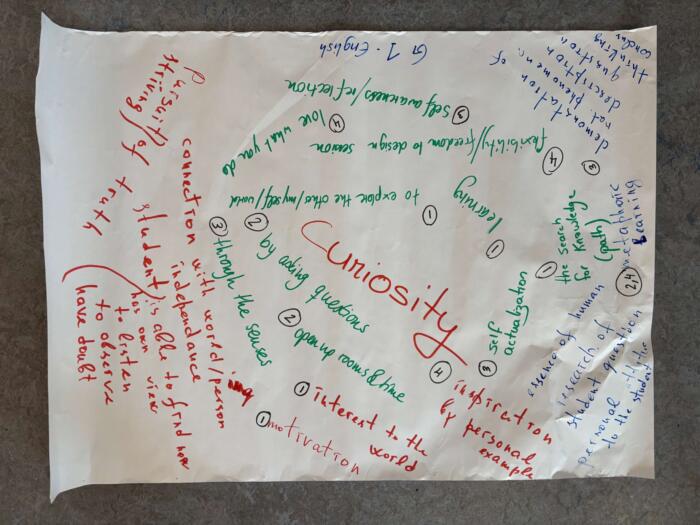 G 1. English
demonstration of
nat phenomena
description
question
thinking
③
③ self awareness/reflection
④ love what you do
④
flexibility/freedom to design session
learning
①
① to explore the other/myself/world
② by asking questions
③ through the senses
Curiosity
② opening rooms & time
① the search
for knowledge
(path)
③ self
actualization
②,4 metaphoric
learning
④ inspiration
by personal
example
① interest to the
world
① motivation
essence of human
research of
student question
personal
to the student
Pursuit/
striving of truth
connection with world/person
independance
student is able to find now
has own view
to listen
to observe
have doubt
ing